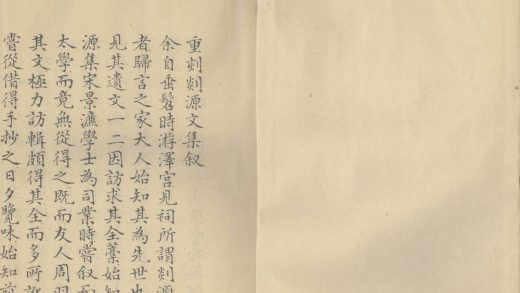 重刻剡源文集叙
余自垂髫時游澤宮見祠所謂剡源
者歸言之家大人始知其為先世也
見其遺文一二因訪求其全藁始知
源集宋景濂學士為司業時嘗叙而
太學而竟無從得之既而友人周羽
其文極力訪輯頗得其全而多所訛
嘗從借得手抄之日夕覽味始知前